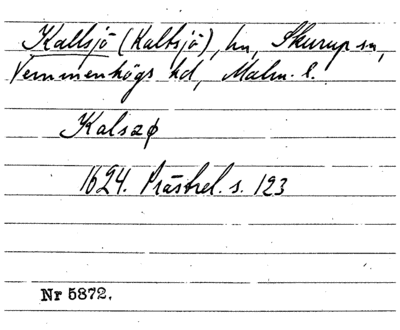 Kallsjö (Kaltsjö), hn, Skurup sn,
Vemmenhögs hd, Malm. l.
Kalszø
1624. Prästrel. s. 123
Nr 5872.